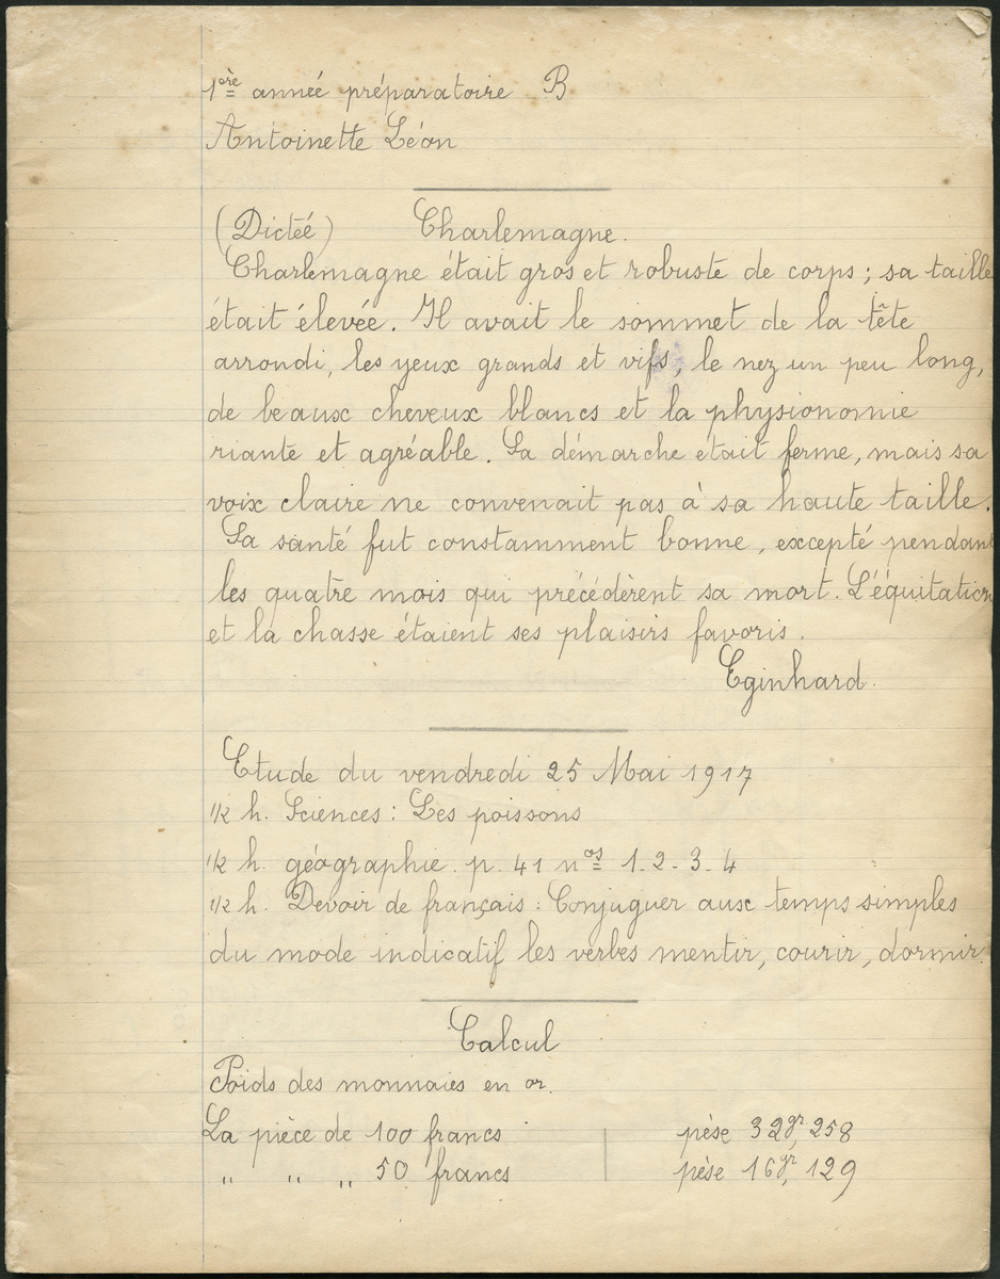 1ère année préparatoire B
Antoinette Léon
(Dictée) Charlemagne.
Charlemagne était gros et robuste de corps ; sa taille
était élevée. Il avait le sommet de la tête
arrondi, les yeux grands et vifs, le nez un peu long,
de beaux cheveux blancs et la physionomie
riante et agréable. Sa démarche était ferme, mais sa
voix claire ne convenait pas à sa haute taille.
Sa santé fut constamment bonne, excepté pendant
les quatre mois qui précédèrent sa mort. L'équitation
et la chasse étaient ses plaisirs favoris.
Eginhard.
Etude du vendredi 25 Mai 1917
1/2 h. Sciences : Les poissons
1/2 h. géographie. p. 41 nos 1-2-3-4
1/2 h. Devoir de français : Conjuguer aux temps simples
du mode indicatif les verbes mentir, courir, dormir.
Calcul
Poids des monnaies en or.
La pièce de 100 francs pèse 32gr,258
" " " 50 francs pèse 16gr,129